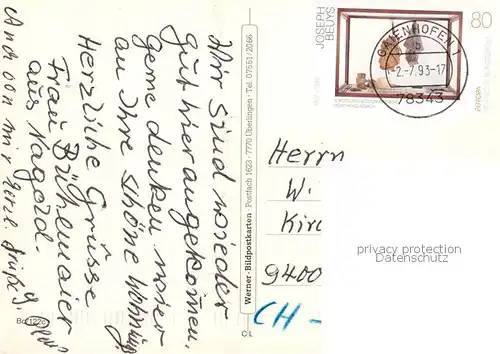 Wir sind wieder
gut hier angekommen.
Gerne denken wir
an Ihre schöne Wohnung
Herzliche Grüsse
Frau Bühlmaier
aus Nagold.
Auch von mir herzl. Grüße
Bo 122
Werner-Bildpostkarten · Postfach 1623 · 7770 Überlingen · Tel. 07551/2066
C/L
JOSEPH
BEUYS
80
EUROPA
GAIENHOFEN 1
b
-2.-7.93-17
78343
Herrn
W.
Kirc
9400
CH -
privacy protection
Datenschutz